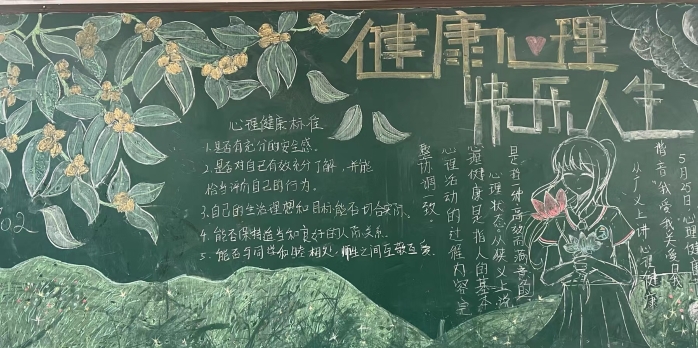 健康心理
快乐人生
心理健康标准
1.是否有充分的安全感.
2.是否对自己有效充分了解,并能
恰当评价自己的行为.
3.自己的生活理想和目标能否切合实际.
4.能否保持适当和良好的人际关系.
5.能否与同学和睦相处,师生之间互敬互爱
5月25日心理健康
谐音"我爱我关爱自我
从广义上讲心理健康
是指一种高效而满意的
心理状态 从狭义上说
心理健康是指人的基本
心理活动的过程内容完
整协调一致
02